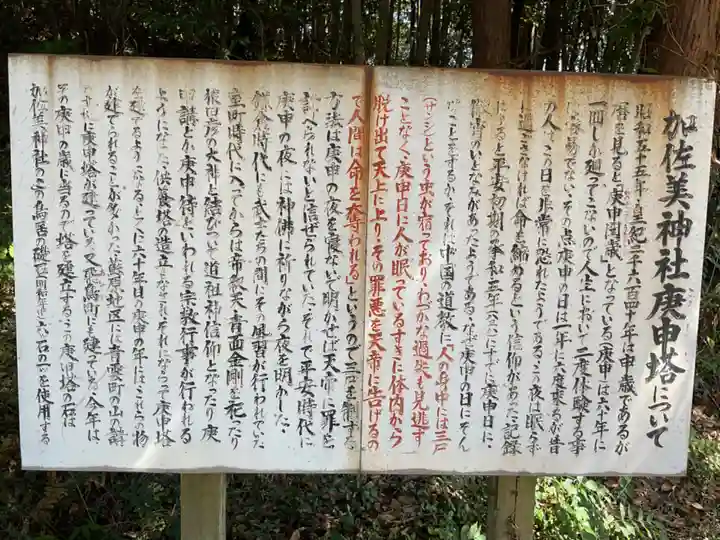 加佐美神社庚申塔について
昭和五十五年(皇紀二千六百四十年)は申歳であるが
暦を見ると「庚申閏歳」となっている(庚申)は六十年に
一回しか廻ってこないので人生において二度体験する事
は稀でない、その点庚申の日は一年に六度来るが昔
の人はこの日を非常に恐れたようである、この夜は眠らず
に過さなければ命を縮めるという信仰があった記録
によると平安初期の承和三年
すでに庚申日に
があったようである、なぜ庚申の日にそん
なことをするか、それは中国の道教に「人の身中には三尸
(サンシ)という虫が宿っており、わづかな過失も見逃す
ことなく庚申日に人が眠っているすきに体内から
脱け出て天上に上り、その罪悪を天帝に告げるの
で人間は命を奪われる」というので三尸を制する
方法は庚申の夜を寝ないで明かせば天帝に罪を
訴へられないと信ぜられていた、それで平安時代に
庚申の夜には神佛に祈りながら夜を明かした、
鎌倉時代にも武士たちの間にその風習が行われていた
室町時代に入ってからは帝釈天、青面金剛を祀ったり
猿田彦の大神と結びついて道祖神信仰となったり庚
申講とか庚申待といわれる宗教行事が行われる
ようになった、供養塔の造立もなされそれになって庚申塔
を建てるようになると
六十年目の庚申の年にはこれの物
が建てられることが多かった
地区には青雲町の山の講
に庚申塔が建っている、又飛鳥町にも建っている、今年は
その庚申の歳に当るので塔を建立する、この庚申塔の石は
加佐美神社の
鳥居の礎石
六ヶ石の一つを使用する